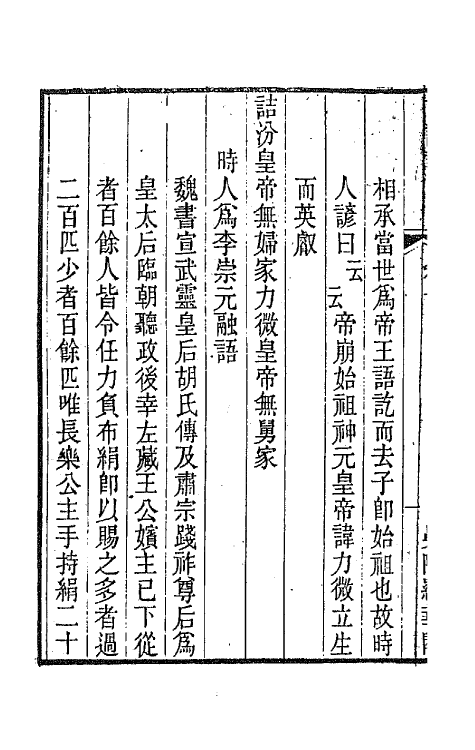 相承當世爲帝王語訖而去子卽始祖也故時
人諺曰云云帝崩始祖神元皇帝諱力微立生
而英叡
詰汾皇帝無婦家力微皇帝無舅家
時人爲李崇元融語
魏書宣武靈皇后胡氏傳及肅宗踐祚尊后爲
皇太后臨朝聽政後幸左藏王公嬪主已下從
者百餘人皆令任力負布絹卽以賜之多者過
二百匹少者百餘匹唯長樂公主手持絹二十